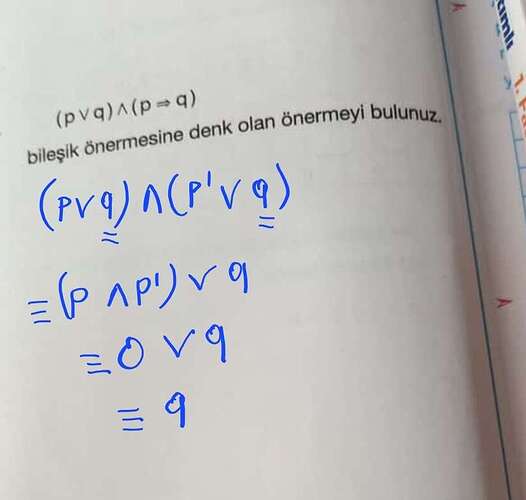 (p ∨ q) ∧ (p ⇒ q)
bileşik önermesine denk olan önermeyi bulunuz.
(p ∨ q) ∧ (p' ∨ q)
≡ (p ∧ p') ∨ q
≡ 0 ∨ q
≡ q
A
A